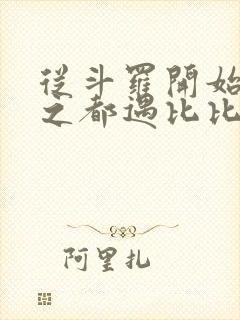 從斗羅開始
之都遇比比
阿里扎